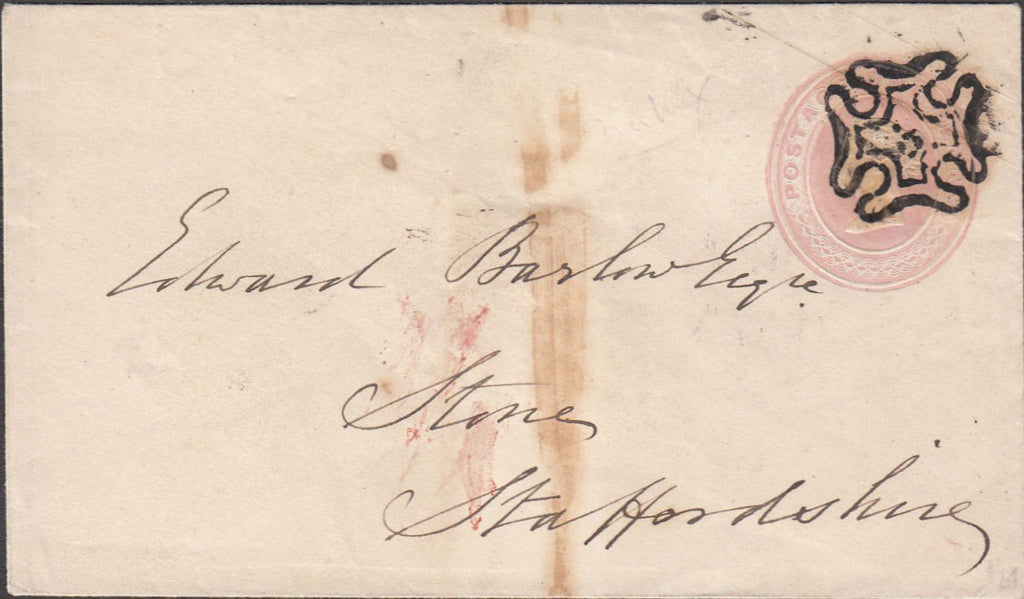 POSTAG
Edward Barlow Esqre
Stone
Staffordshire